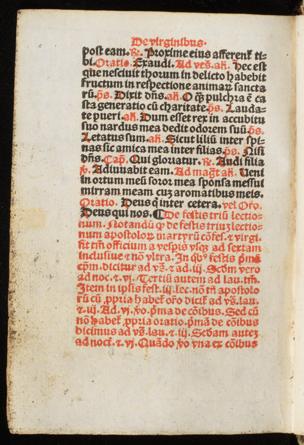 De virginibus.
post eam. ℟. Proxime eius afferent̃ ti-
bi. Oratio. Exaudi. Ad ves. añ. Hec est
que nesciuit thorum in delicto habebit
fructum in respectione animarum sancta
rū. ps. Dixit dñs. añ. O quam pulchra ē ca
sta generatio cū charitate. ps. Lauda-
te pueri. añ. Dum esset rex in accubitu
suo nardus mea dedit odorem suū. ps.
Letatus sum. añ. Sicut liliū inter spi-
nas sic amica mea inter filias. ps. Nisi
dñs. Cap. Qui gloriatur. ℟. Audi filia
℣. Adiuuabit eam. Ad magt̃ añ. Ueni
in ortum meū soror mea sponsa messui
mirram meam cuz aromatibus meis.
Oratio. Deus q̃ inter cetera. vel Oro.
Deus qui nos. De festis triū lectio-
num. Notandū q̃ de festis triuz lectio-
num apostoloꝝ martyrū cōfes. ⁊ virgi.
fit tm̃ officium a vespis vsqz ad sextam
inclusiue ⁊ nō vltra. In qbꝰ festis p̄ma
cōm. dicitur ad vs̃. ⁊ ad .iij. Scd̃m vero
ad noct. ⁊ vi. Tertiū autem ad lau. tm̃.
Item in ip̄sis fest. iij. lec. nō tñ apostolo
rū cū ꝓpria habeñt oro dicit̃ ad vs̃. lau.
⁊ iij. Ad .vi. ℣o. p̄ma de cōibus. Sed cū
nō habeñt ꝓpria oratio. p̄ma de cōibus
dicimus ad vs̃. lau. ⁊ iij. Scd̃am autez
ad noct. ⁊ vi. Quādo ℣o vna ex cōibus